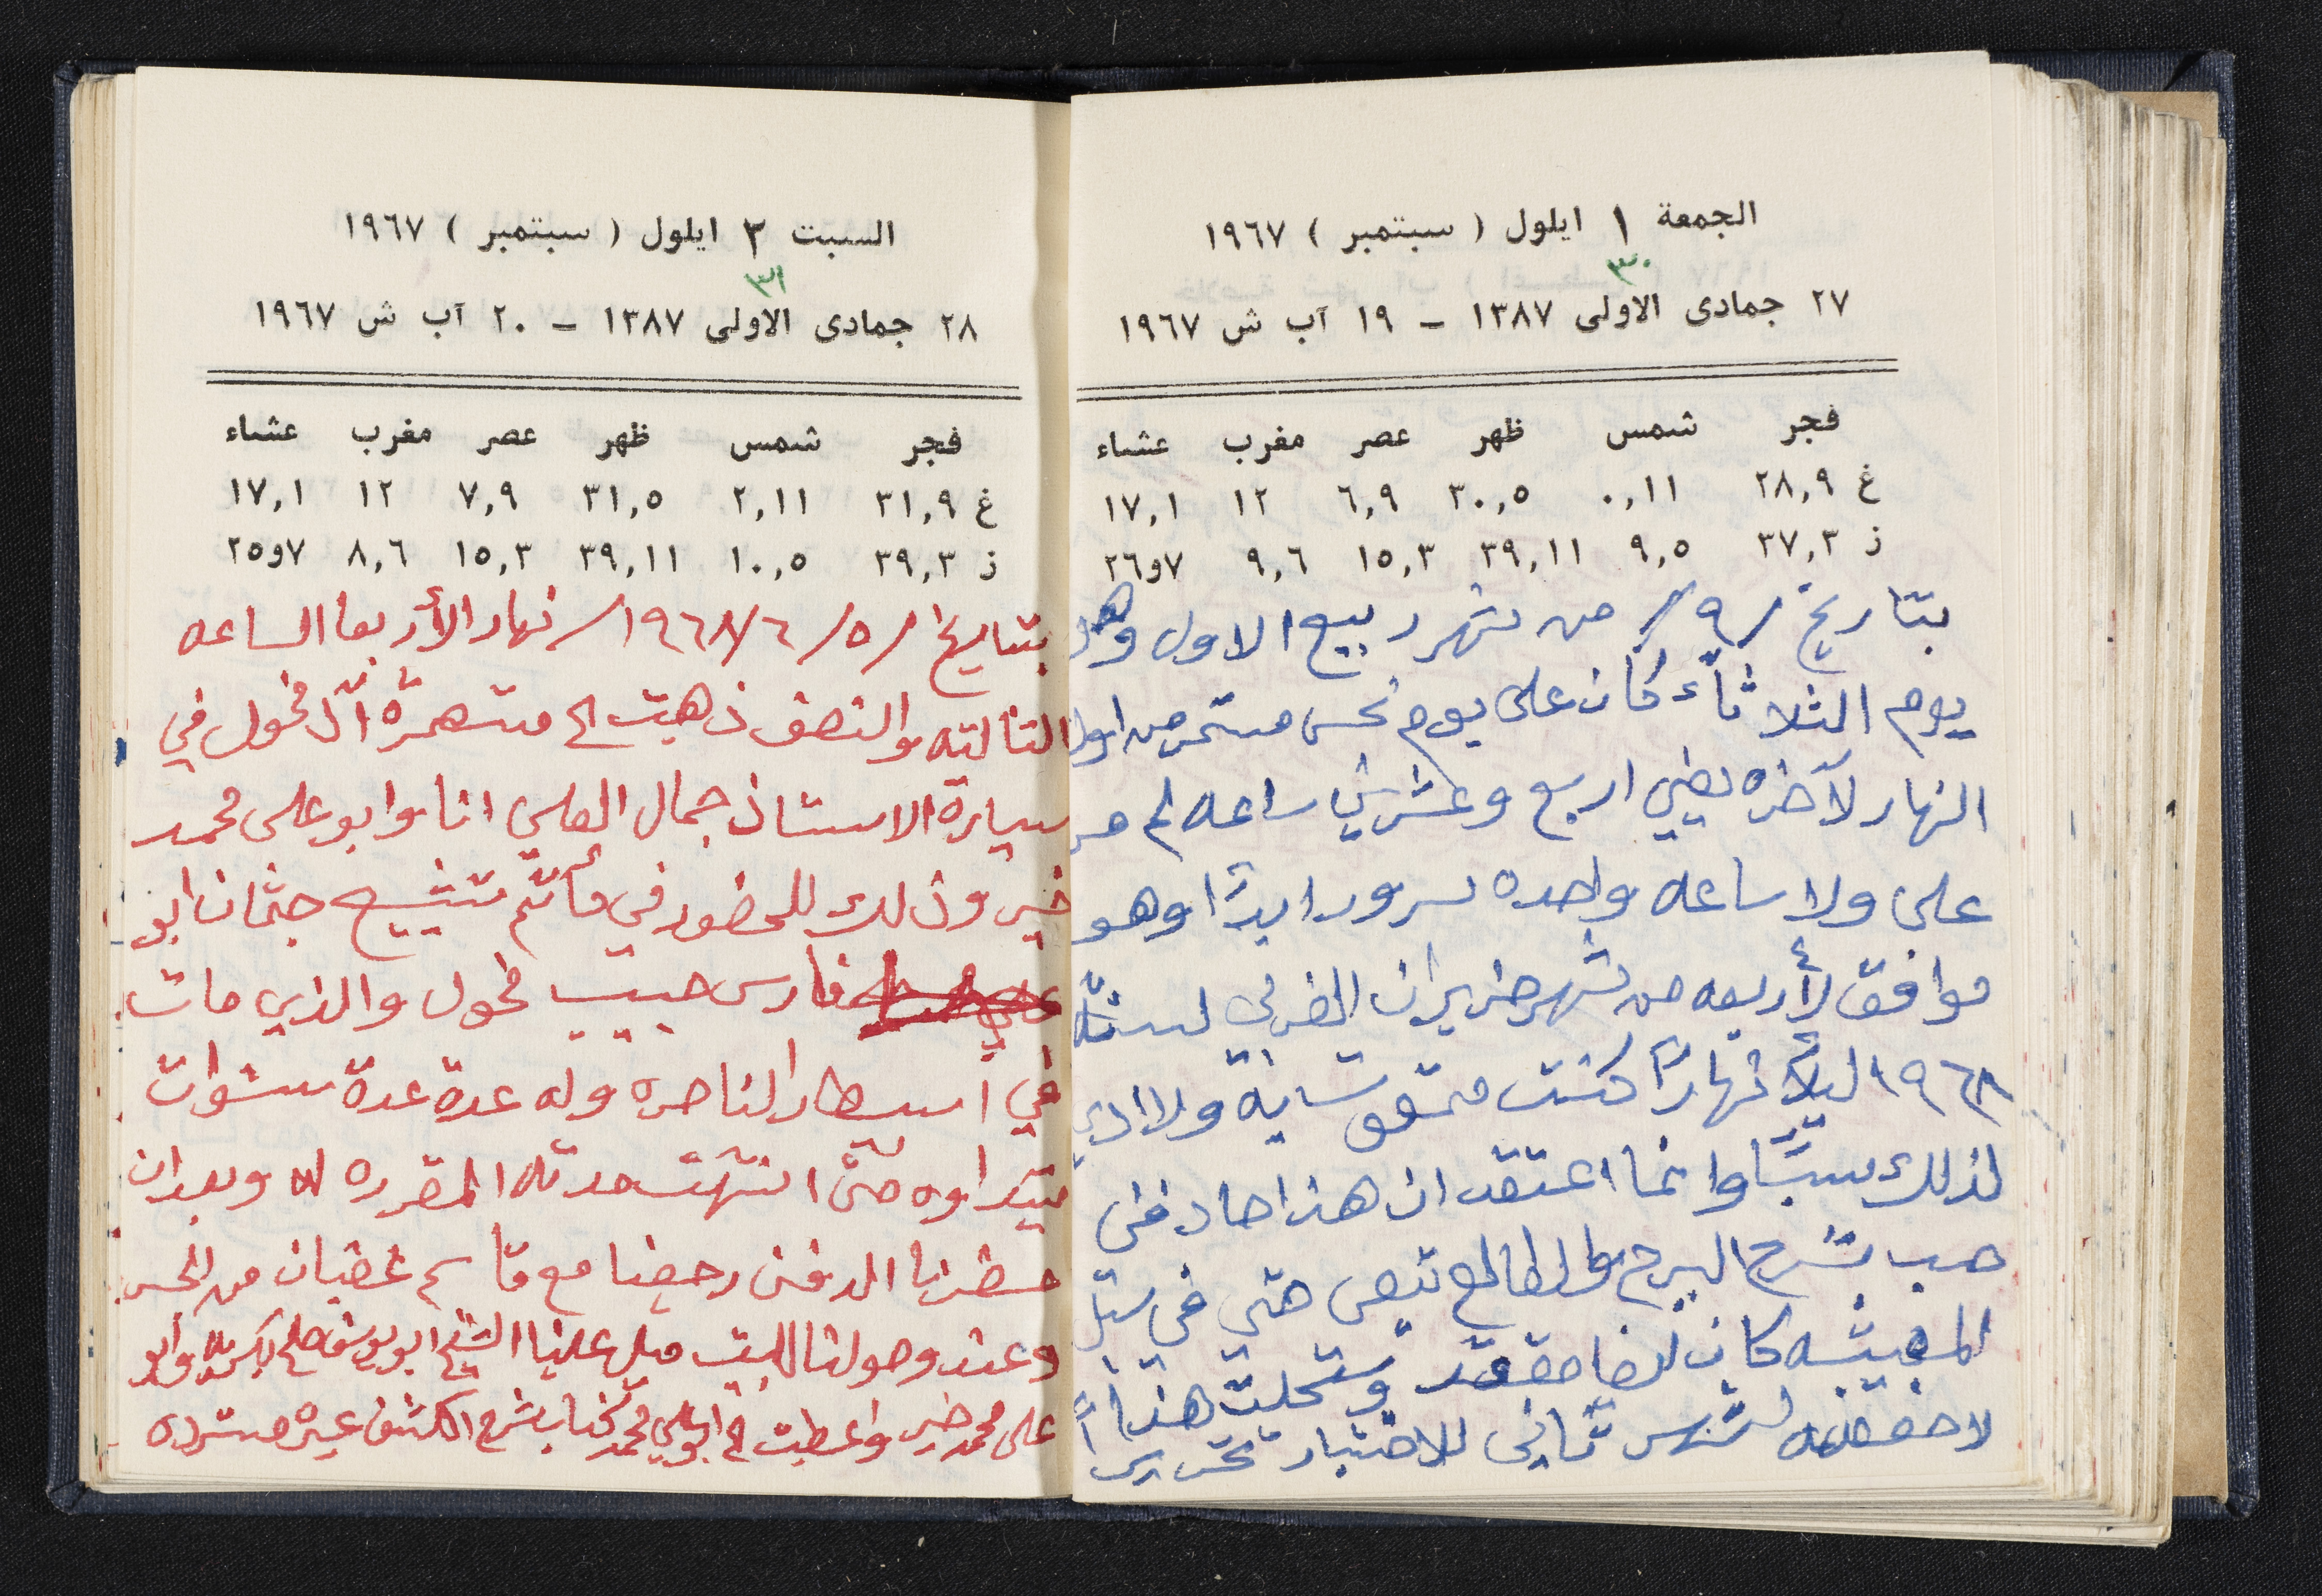 الجمعة ١ ايلول ( سبتمبر ) ١٩٦٧
٣٠
٢٧ جمادى الاولى ١٣٨٧ – ١٩ آب ش ١٩٦٧
فجر شمس ظهر عصر مغرب عشاء
غ ٢٨,٩ ٠,١١ ٣٠,٥ ٦,٩ ١٢ ١٧,١
ز ٣٧,٣ ٩,٥ ٣٩,١١ ١٥,٣ ٩,٦ ٧و٢٦
بتاريخ /٩/ من شهر ربيع الاول وهو
يوم الثلاثاء كان على يوم نحس مستمر من اول
النهار لآخره يعني اربع وعشرين ساعه لم مر
على ولا ساعه واحده سرور ابدًا وهو
موافق لأربعه من شهر حزيران الغربي لسنة
١٩٦٨ ليلاً نهارًا كنت ولا ادري
لذلك سببًا وانما اعتقد ان هذا صادفني
حب شرح البرج والطالع تبعي حتى في
المعيشه كان ايضا وسجلت هذا
لا ثاني للاختبار تحريرًا
السبت ٢ ايلول ( سبتمبر ) ١٩٦٧
٣١
٢٨ جمادى الاولى ١٣٨٧ – ٢٠ آب ش ١٩٦٧
فجر شمس ظهر عصر مغرب عشاء
غ ٣١,٩ ٢,١١ ٣١,٥ ٧,٩ ١٢ ١٧,١
ز ٣٩,٣ ١٠,٥ ٣٩,١١ ١٥,٣ ٨,٦ ٧و٢٥
بتاريخ /٥/٦/١٩٦٨/ نهار الأربعا الساعه
الثالثه والنصف ذهبت الى فحول في
سيارة الاستاذ جمال العلي انا وابو على محمد
خير وذلك للحضور في مأتم تشييع جثمان ابو
فارس حبيب فحول والذي مات
في اسبطار الناصره وله عدة عدة سنوات
يتداوه حتى انتهت مدته المقرره له وبعد ان
حضرنا الدفن رجعنا مع قاسم غضبان من الجسر
وعند وصولنا للبيت ميل علينا الشيخ ابو يوسف وابو
على محمد خير واعطيت ابو علي محمد كتاب شرح الكشف عيره مسترده